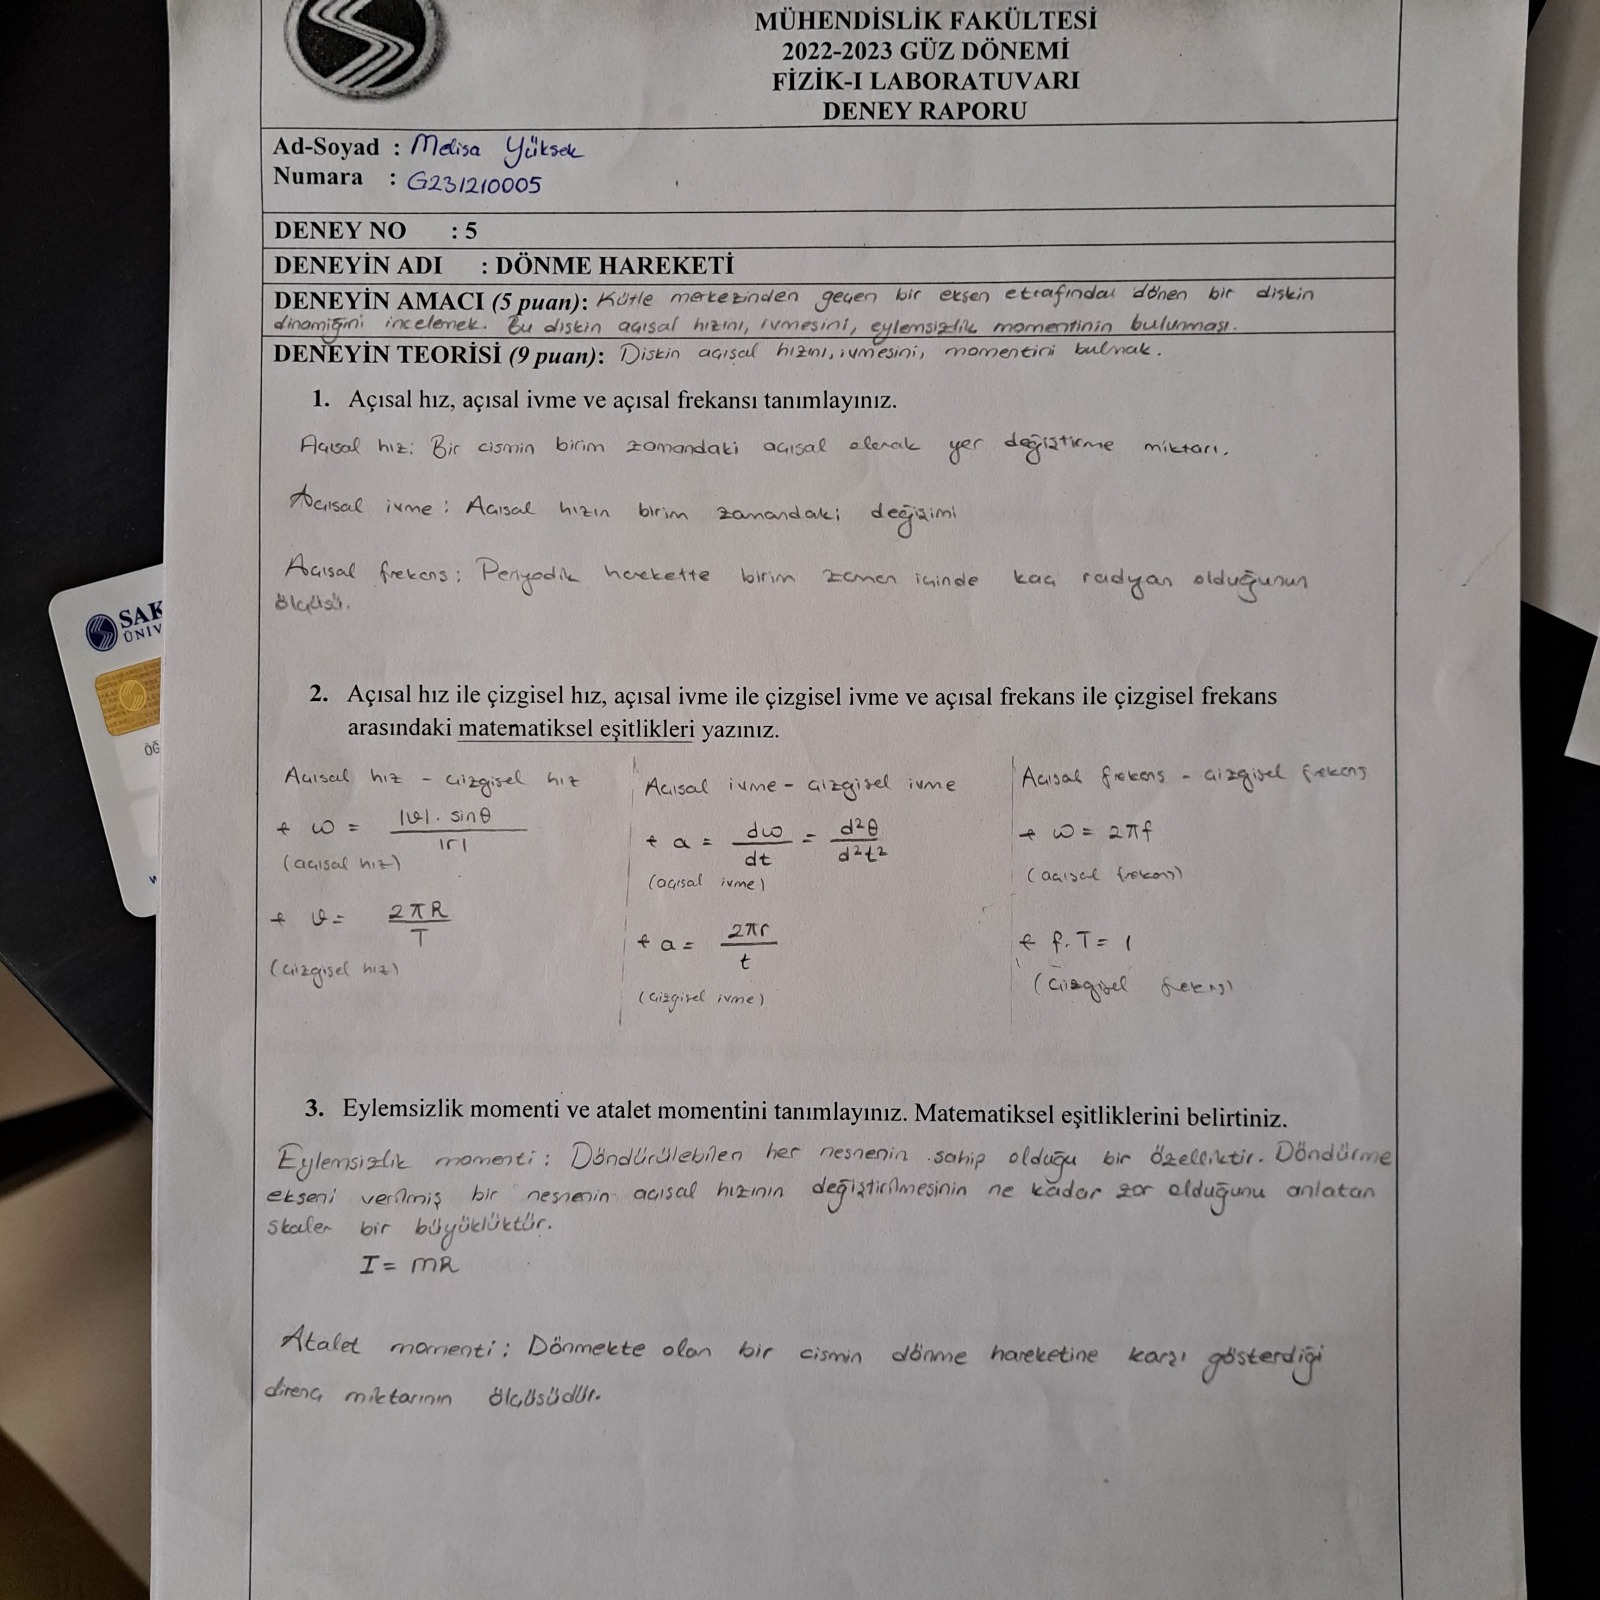 MÜHENDİSLİK FAKÜLTESİ
2022-2023 GÜZ DÖNEMİ
FİZİK-I LABORATUVARI
DENEY RAPORU
Ad-Soyad : Melisa Yüksek
Numara : G231210005
DENEY NO : 5
DENEYİN ADI : DÖNME HAREKETİ
DENEYİN AMACI (5 puan): Kütle merkezinden geçen bir eksen etrafında dönen bir diskin
dinamiğini incelemek. Bu diskin açısal hızını, ivmesini, eylemsizlik momentinin bulunması.
DENEYİN TEORİSİ (9 puan): Diskin açısal hızını, ivmesini, momentini bulmak.
1. Açısal hız, açısal ivme ve açısal frekansı tanımlayınız.
Açısal hız: Bir cismin birim zamandaki açısal olarak yer değiştirme miktarı.
Açısal ivme : Açısal hızın birim zamandaki değişimi
Açısal frekans : Periyodik harekette birim zaman içinde kaç radyan olduğunun
ölçüsü.
SAK
ÜNİV
ÖĞ
w
2. Açısal hız ile çizgisel hız, açısal ivme ile çizgisel ivme ve açısal frekans ile çizgisel frekans
arasındaki matematiksel eşitlikleri yazınız.
Açısal hız - çizgisel hız
+ ω = |v| . sinθ / |r|
(açısal hız)
+ v = 2πR / T
(çizgisel hız)
Açısal ivme - çizgisel ivme
+ a = dω / dt = d²θ / d²t²
(açısal ivme)
+ a = 2πr / t
(çizgisel ivme)
Açısal frekans - çizgisel frekans
+ ω = 2πf
(açısal frekans)
+ f. T = 1
(çizgisel frekans)
3. Eylemsizlik momenti ve atalet momentini tanımlayınız. Matematiksel eşitliklerini belirtiniz.
Eylemsizlik momenti : Döndürülebilen her nesnenin sahip olduğu bir özelliktir. Döndürme
ekseni verilmiş bir nesnenin açısal hızının değiştirilmesinin ne kadar zor olduğunu anlatan
skaler bir büyüklüktür.
I = mR
Atalet momenti : Dönmekte olan bir cismin dönme hareketine karşı gösterdiği
direnç miktarının ölçüsüdür.